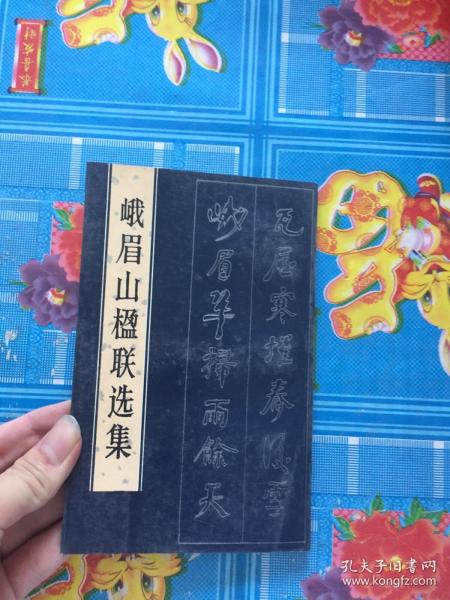 峨眉山楹联选集
瓦屋寒堆春后雪
峨眉翠掃雨餘天
孔夫子旧书网
www.kongfz.com